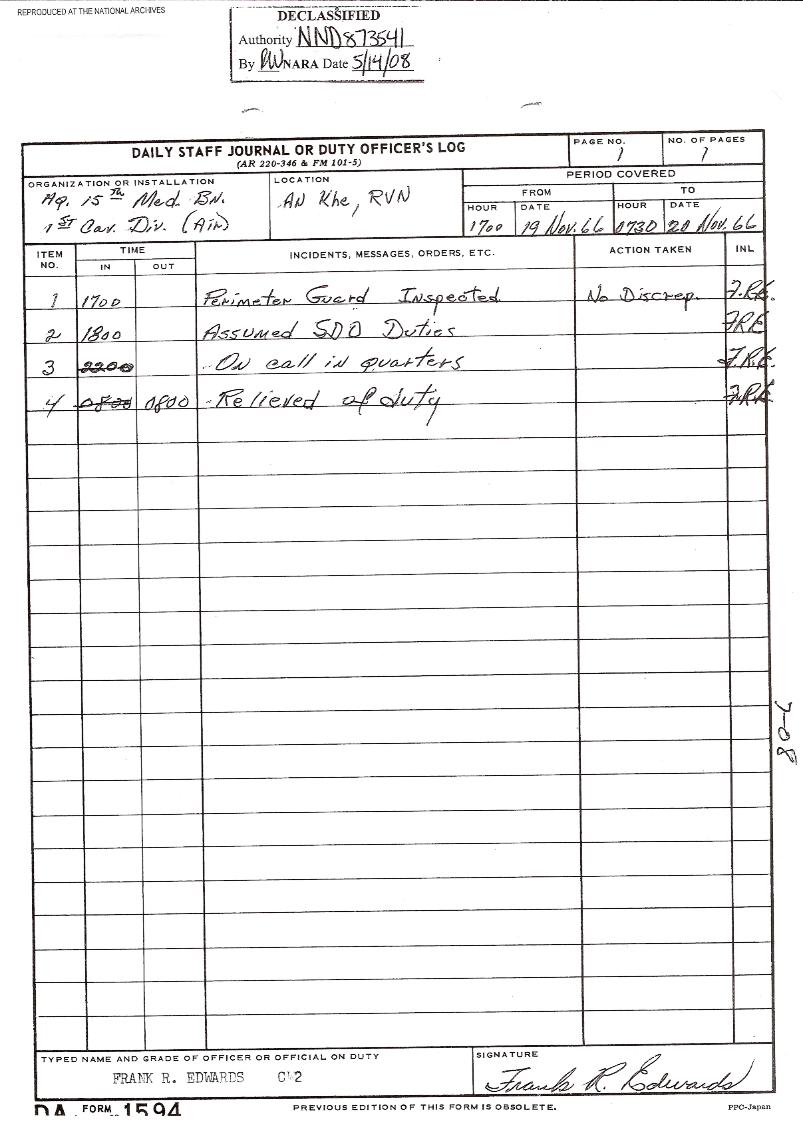 REPRODUCED AT THE NATIONAL ARCHIVES
DECLASSIFIED
Authority NND873541
By RW NARA Date 5/14/08
DAILY STAFF JOURNAL OR DUTY OFFICER'S LOG
(AR 220-346 & FM 101-5)
PAGE NO.
1
NO. OF PAGES
1
ORGANIZATION OR INSTALLATION
Hq. 15th Med. Bn.
1st Cav. Div. (Air)
LOCATION
AN Khe, RVN
PERIOD COVERED
FROM TO
HOUR DATE HOUR DATE
1700 19 Nov. 66 0730 20 Nov. 66
ITEM NO. TIME IN OUT INCIDENTS, MESSAGES, ORDERS, ETC. ACTION TAKEN INL
1 1700 Perimeter Guard Inspected No Discrep. F.R.E.
2 1800 Assumed SDO Duties FRE
3 2200 -On call in quarters F.R.E.
4 0800 -Relieved of duty F.R.E.
7-08
TYPED NAME AND GRADE OF OFFICER OR OFFICIAL ON DUTY
FRANK R. EDWARDS CW2
SIGNATURE
Frank R. Edwards
DA FORM 1594
PREVIOUS EDITION OF THIS FORM IS OBSOLETE.
PPC-Japan